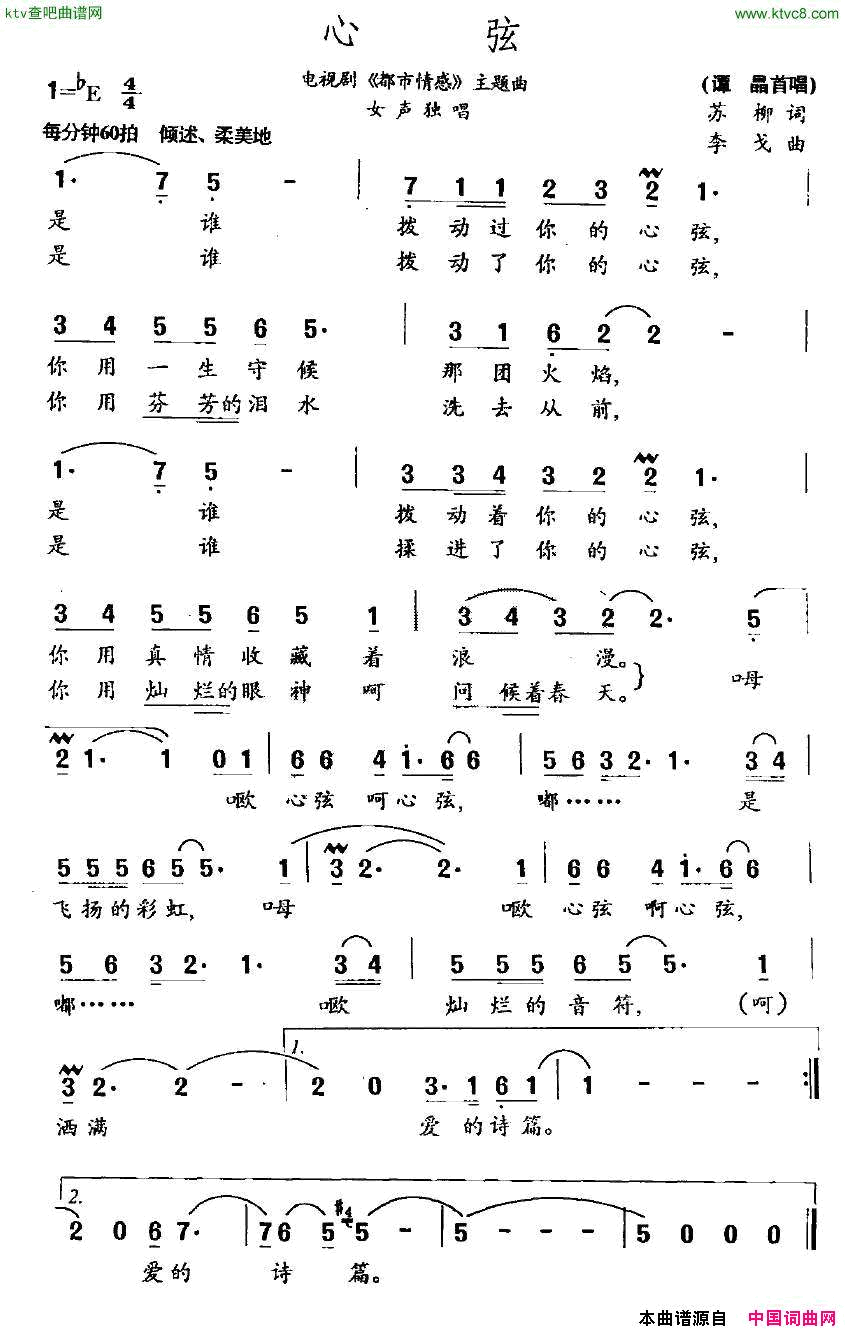 ktv查吧曲谱网
www.ktvc8.com
心 弦
电视剧《都市情感》主题曲
女声独唱
1=♭E 4/4
每分钟60拍 倾述、柔美地
(谭 晶首唱)
苏 柳 词
李 戈 曲
1· 7 5 - | 7 1 1 2 3 2 1· |
是 谁 拨 动 过 你 的 心 弦,
是 谁 拨 动 了 你 的 心 弦,
3 4 5 5 6 5· | 3 1 6 2 2 - |
你 用 一 生 守 候 那 团 火 焰,
你 用 芬 芳 的 泪 水 洗 去 从 前,
1· 7 5 - | 3 3 4 3 2 2 1· |
是 谁 拨 动 着 你 的 心 弦,
是 谁 揉 进 了 你 的 心 弦,
3 4 5 5 6 5 1 | 3 4 3 2 2· 5 |
你 用 真 情 收 藏 着 浪 漫。 呣
你 用 灿 烂 的 眼 神 呵 问 候 着 春 天。
2 1· 1 0 1 | 6 6 4 1· 6 6 | 5 6 3 2· 1· 3 4 |
呕 心 弦 呵 心 弦, 嘟…… 是
5 5 5 6 5 5· 1 | 3 2· 2· 1 | 6 6 4 1· 6 6 |
飞 扬 的 彩 虹, 呣 呕 心 弦 啊 心 弦,
5 6 3 2· 1· 3 4 | 5 5 5 6 5 5· 1 |
嘟…… 呕 灿 烂 的 音 符, (呵)
1.
3 2· 2 - - | 2 0 3· 1 6 1 | 1 - - - :|
洒 满 爱 的 诗 篇。
2.
2 0 6 7· | 7 6 5 #4 5 - - | 5 - - - | 5 0 0 0 ‖
爱 的 诗 篇。
本曲谱源自 中国词曲网